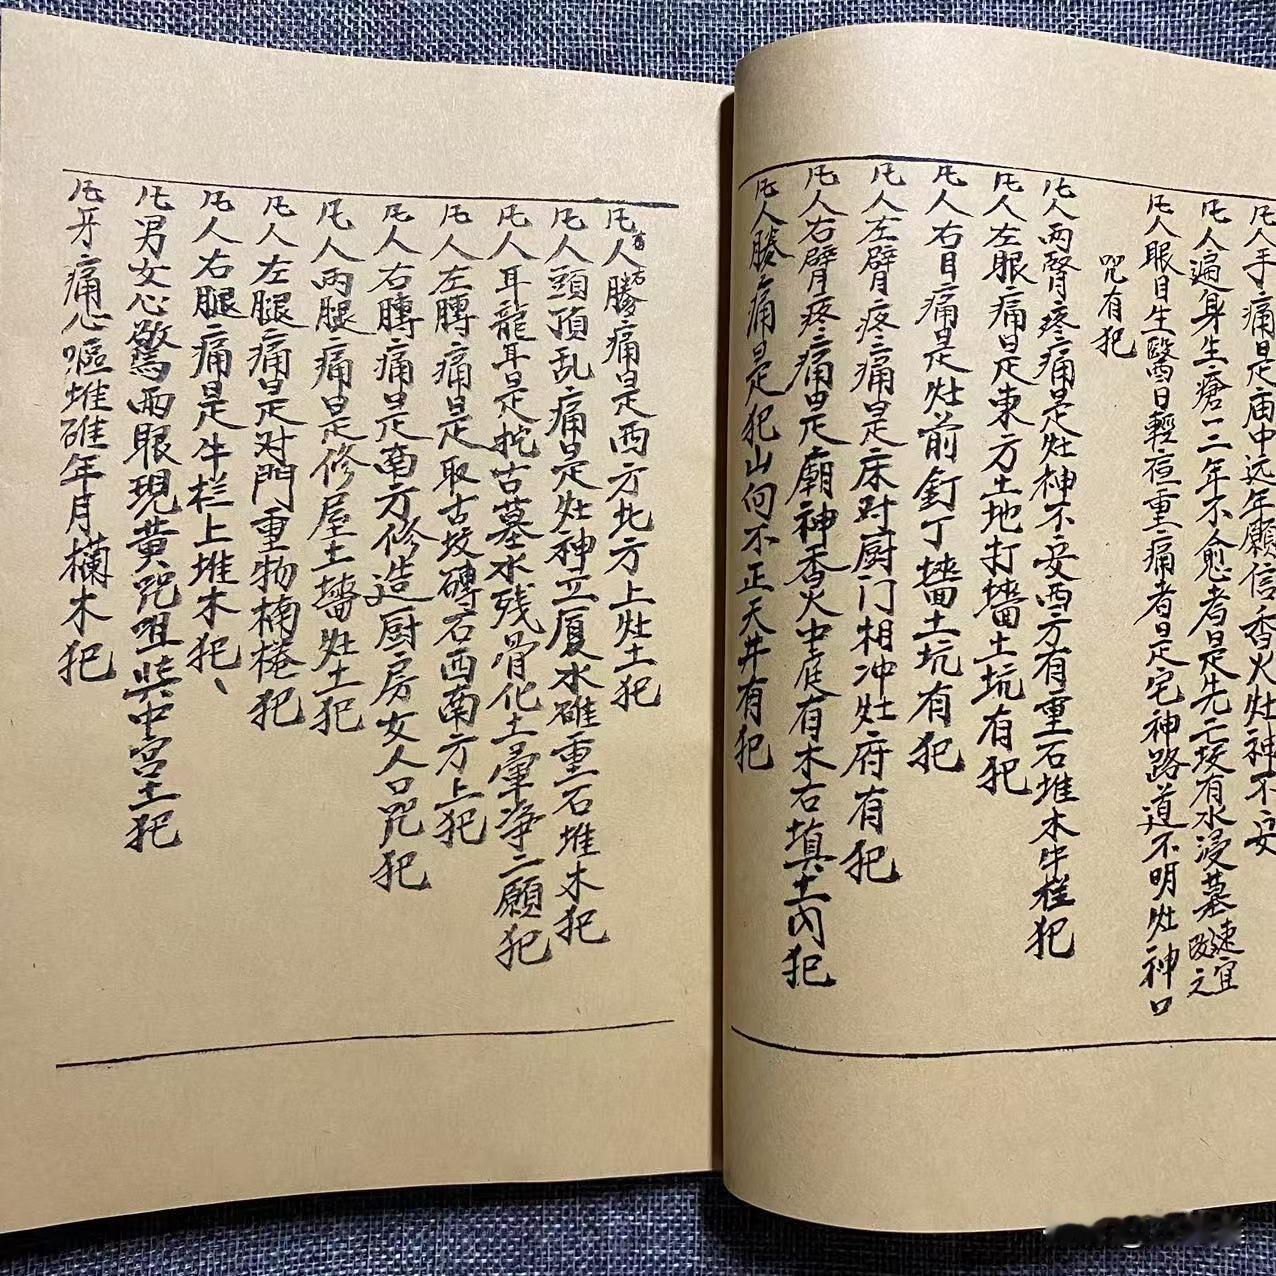 凡人手痛是庙中远年願信香火灶神不安
凡人遍身生瘡一二年不愈者是先亡坟有水浸墓速宜改之
凡人眼目生翳日輕夜重痛者是宅神路道不明灶神口
咒有犯
凡人两臂疼痛是灶神不安西方有重石堆木牛栏犯
凡人左眼痛是東方土地打墻土坑有犯
凡人右目痛是灶前釘丁墻土坑有犯
凡人左臂疼痛是床对厨门相冲灶府有犯
凡人右臂疼痛是廟神香火中庭有木石填土内犯
凡人膝痛是犯山向不正天井有犯
凡人右膝痛是西方北方上灶土犯
凡人頭頂乱痛是灶神立厦水碓重石堆木犯
凡人耳龍耳是挖古墓水残骨化土晕净二願犯
凡人左膊痛是取古坟磚石西南方上犯
凡人右膊痛是南方修造厨房女人口咒犯
凡人两腿痛是修屋土墻灶土犯
凡人左腿痛是对門重物楠棬犯
凡人右腿痛是牛栏上堆木犯、
凡男女心驚两眼現黄咒咀柴中宫土犯
凡牙痛心嘔堆碓年月欄木犯